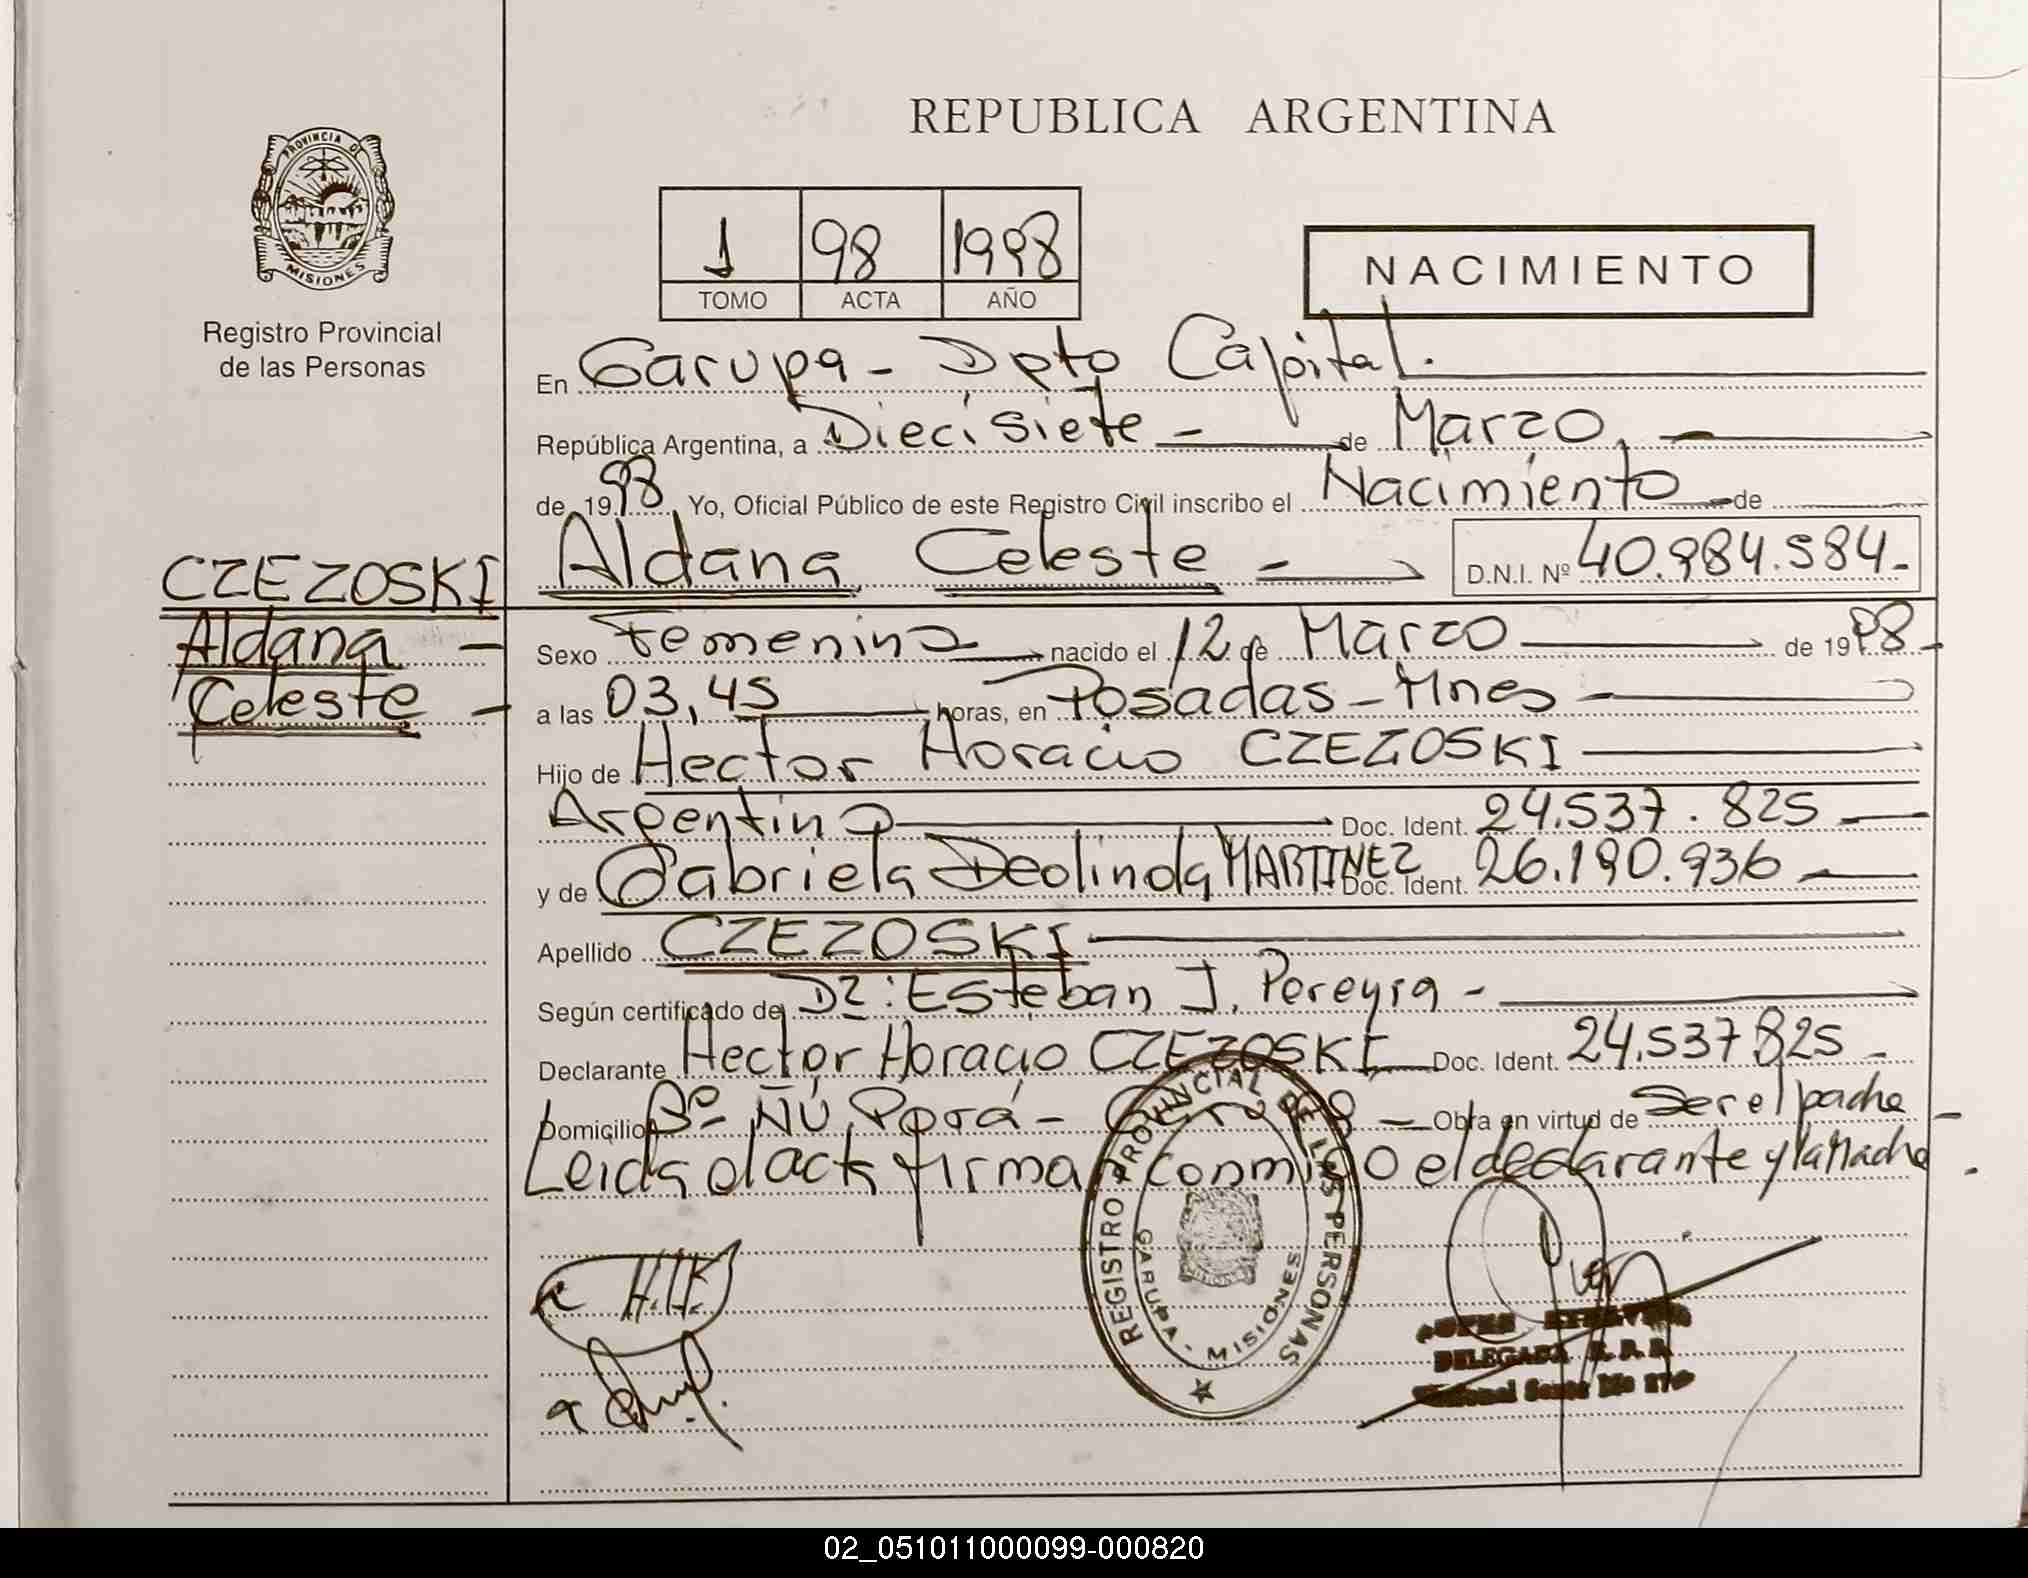 REPUBLICA ARGENTINA
PROVINCIA DE
MISIONES
Registro Provincial
de las Personas
1 98 1998
TOMO ACTA AÑO
NACIMIENTO
En Garupa - Dpto Capital.
República Argentina, a Diecisiete - de Marzo.
de 1998 Yo, Oficial Público de este Registro Civil inscribo el Nacimiento de
Aldana Celeste - D.N.I. Nº 40.984.584-
CZEZOSKI
Aldana -
Celeste -
Sexo Femenino nacido el 12 de Marzo de 1998-
a las 03,45 horas, en Posadas - Mnes -
Hijo de Hector Horacio CZEZOSKI
Argentino Doc. Ident. 24.537.825
y de Gabriela Deolinda MARTINEZ Doc. Ident. 26.190.936
Apellido CZEZOSKI
Según certificado de Dr: Esteban J. Pereyra -
Declarante Hector Horacio CZEZOSKI Doc. Ident. 24.537825 -
Domicilio Bº Ñú Porá - Obra en virtud de Ser el padre -
Leida el acta firman conmigo el declarante y la Madre.
REGISTRO PROVINCIAL DE LAS PERSONAS
GARUPA - MISIONES
DELEGADA R. P. P.
02_051011000099-000820